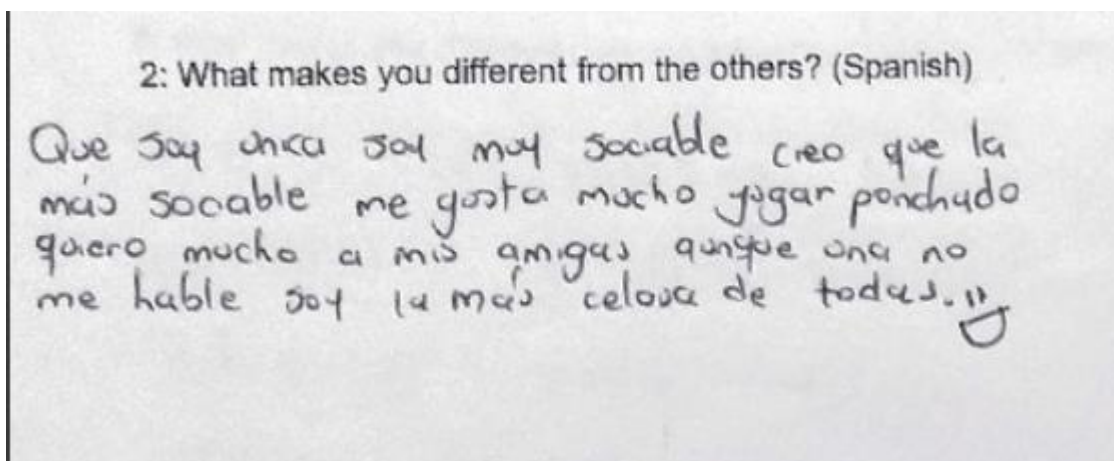 2: What makes you different from the others? (Spanish)
Que soy unica soy muy sociable creo que la
más socable me gusta mucho jugar ponchado
quiero mucho a mis amigas aunque una no
me hable soy la más celosa de todas.